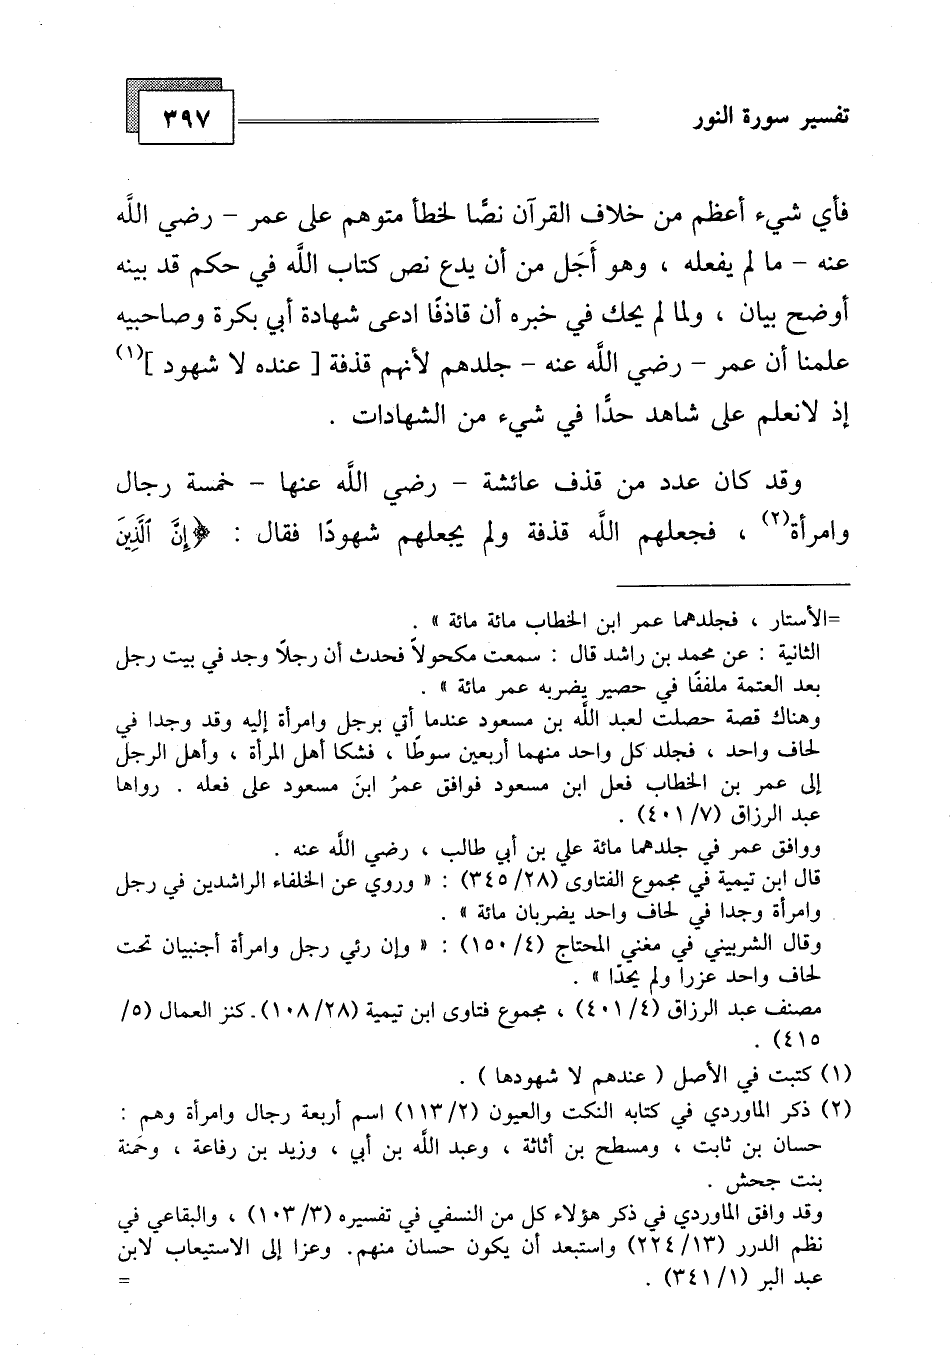 تفسير سورة النور
٣٩٧
فأي شيء أعظم من خلاف القرآن نصًّا لخطأ متوهم على عمر - رضي اللَّه
عنه - ما لم يفعله ، وهو أَجَل من أن يدع نص كتاب اللَّه في حكم قد بينه
أوضح بيان ، ولما لم يحك في خبره أن قاذفًا ادعى شهادة أبي بكرة وصاحبيه
علمنا أن عمر - رضي اللَّه عنه - جلدهم لأنهم قذفة [ عنده لا شهود ](١)
إذ لانعلم على شاهد حدًّا في شيء من الشهادات .
وقد كان عدد من قذف عائشة - رضي اللَّه عنها - خمسة رجال
وامرأة(٢) ، فجعلهم اللَّه قذفة ولم يجعلهم شهودًا فقال : ﴿إِنَّ ٱلَّذِينَ
=الأستار ، فجلدهما عمر ابن الخطاب مائة مائة » .
الثانية : عن محمد بن راشد قال : سمعت مكحولاً فحدث أن رجلاً وجد في بيت رجل
بعد العتمة ملففًا في حصير يضربه عمر مائة » .
وهناك قصة حصلت لعبد اللَّه بن مسعود عندما أتي برجل وامرأة إليه وقد وجدا في
لحاف واحد ، فجلد كل واحد منهما أربعين سوطًا ، فشكا أهل المرأة ، وأهل الرجل
إلى عمر بن الخطاب فعل ابن مسعود فوافق عمرُ ابنَ مسعود على فعله . رواها
عبد الرزاق (٤٠١/٧) .
ووافق عمر في جلدهما مائة علي بن أبي طالب ، رضي اللَّه عنه .
قال ابن تيمية في مجموع الفتاوى (٣٤٥/٢٨) : « وروي عن الخلفاء الراشدين في رجل
وامرأة وجدا في لحاف واحد يضربان مائة » .
وقال الشربيني في مغني المحتاج (١٥٠/٤) : « وإن رئي رجل وامرأة أجنبيان تحت
لحاف واحد عزرا ولم يحدّا » .
مصنف عبد الرزاق (٤٠١/٤) ، مجموع فتاوى ابن تيمية (١٠٨/٢٨)ـ كنز العمال (٥/
٤١٥) .
(١) كتبت في الأصل ( عندهم لا شهودها ) .
(٢) ذكر الماوردي في كتابه النكت والعيون (١١٣/٢) اسم أربعة رجال وامرأة وهم :
حسان بن ثابت ، ومسطح بن أثاثة ، وعبد اللَّه بن أبي ، وزيد بن رفاعة ، وحَمنة
بنت جحش .
وقد وافق الماوردي في ذكر هؤلاء كل من النسفي في تفسيره (١٠٣/٣) ، والبقاعي في
نظم الدرر (٢٢٤/١٣) واستبعد أن يكون حسان منهم. وعزا إلى الاستيعاب لابن
عبد البر (٣٤١/١) . =